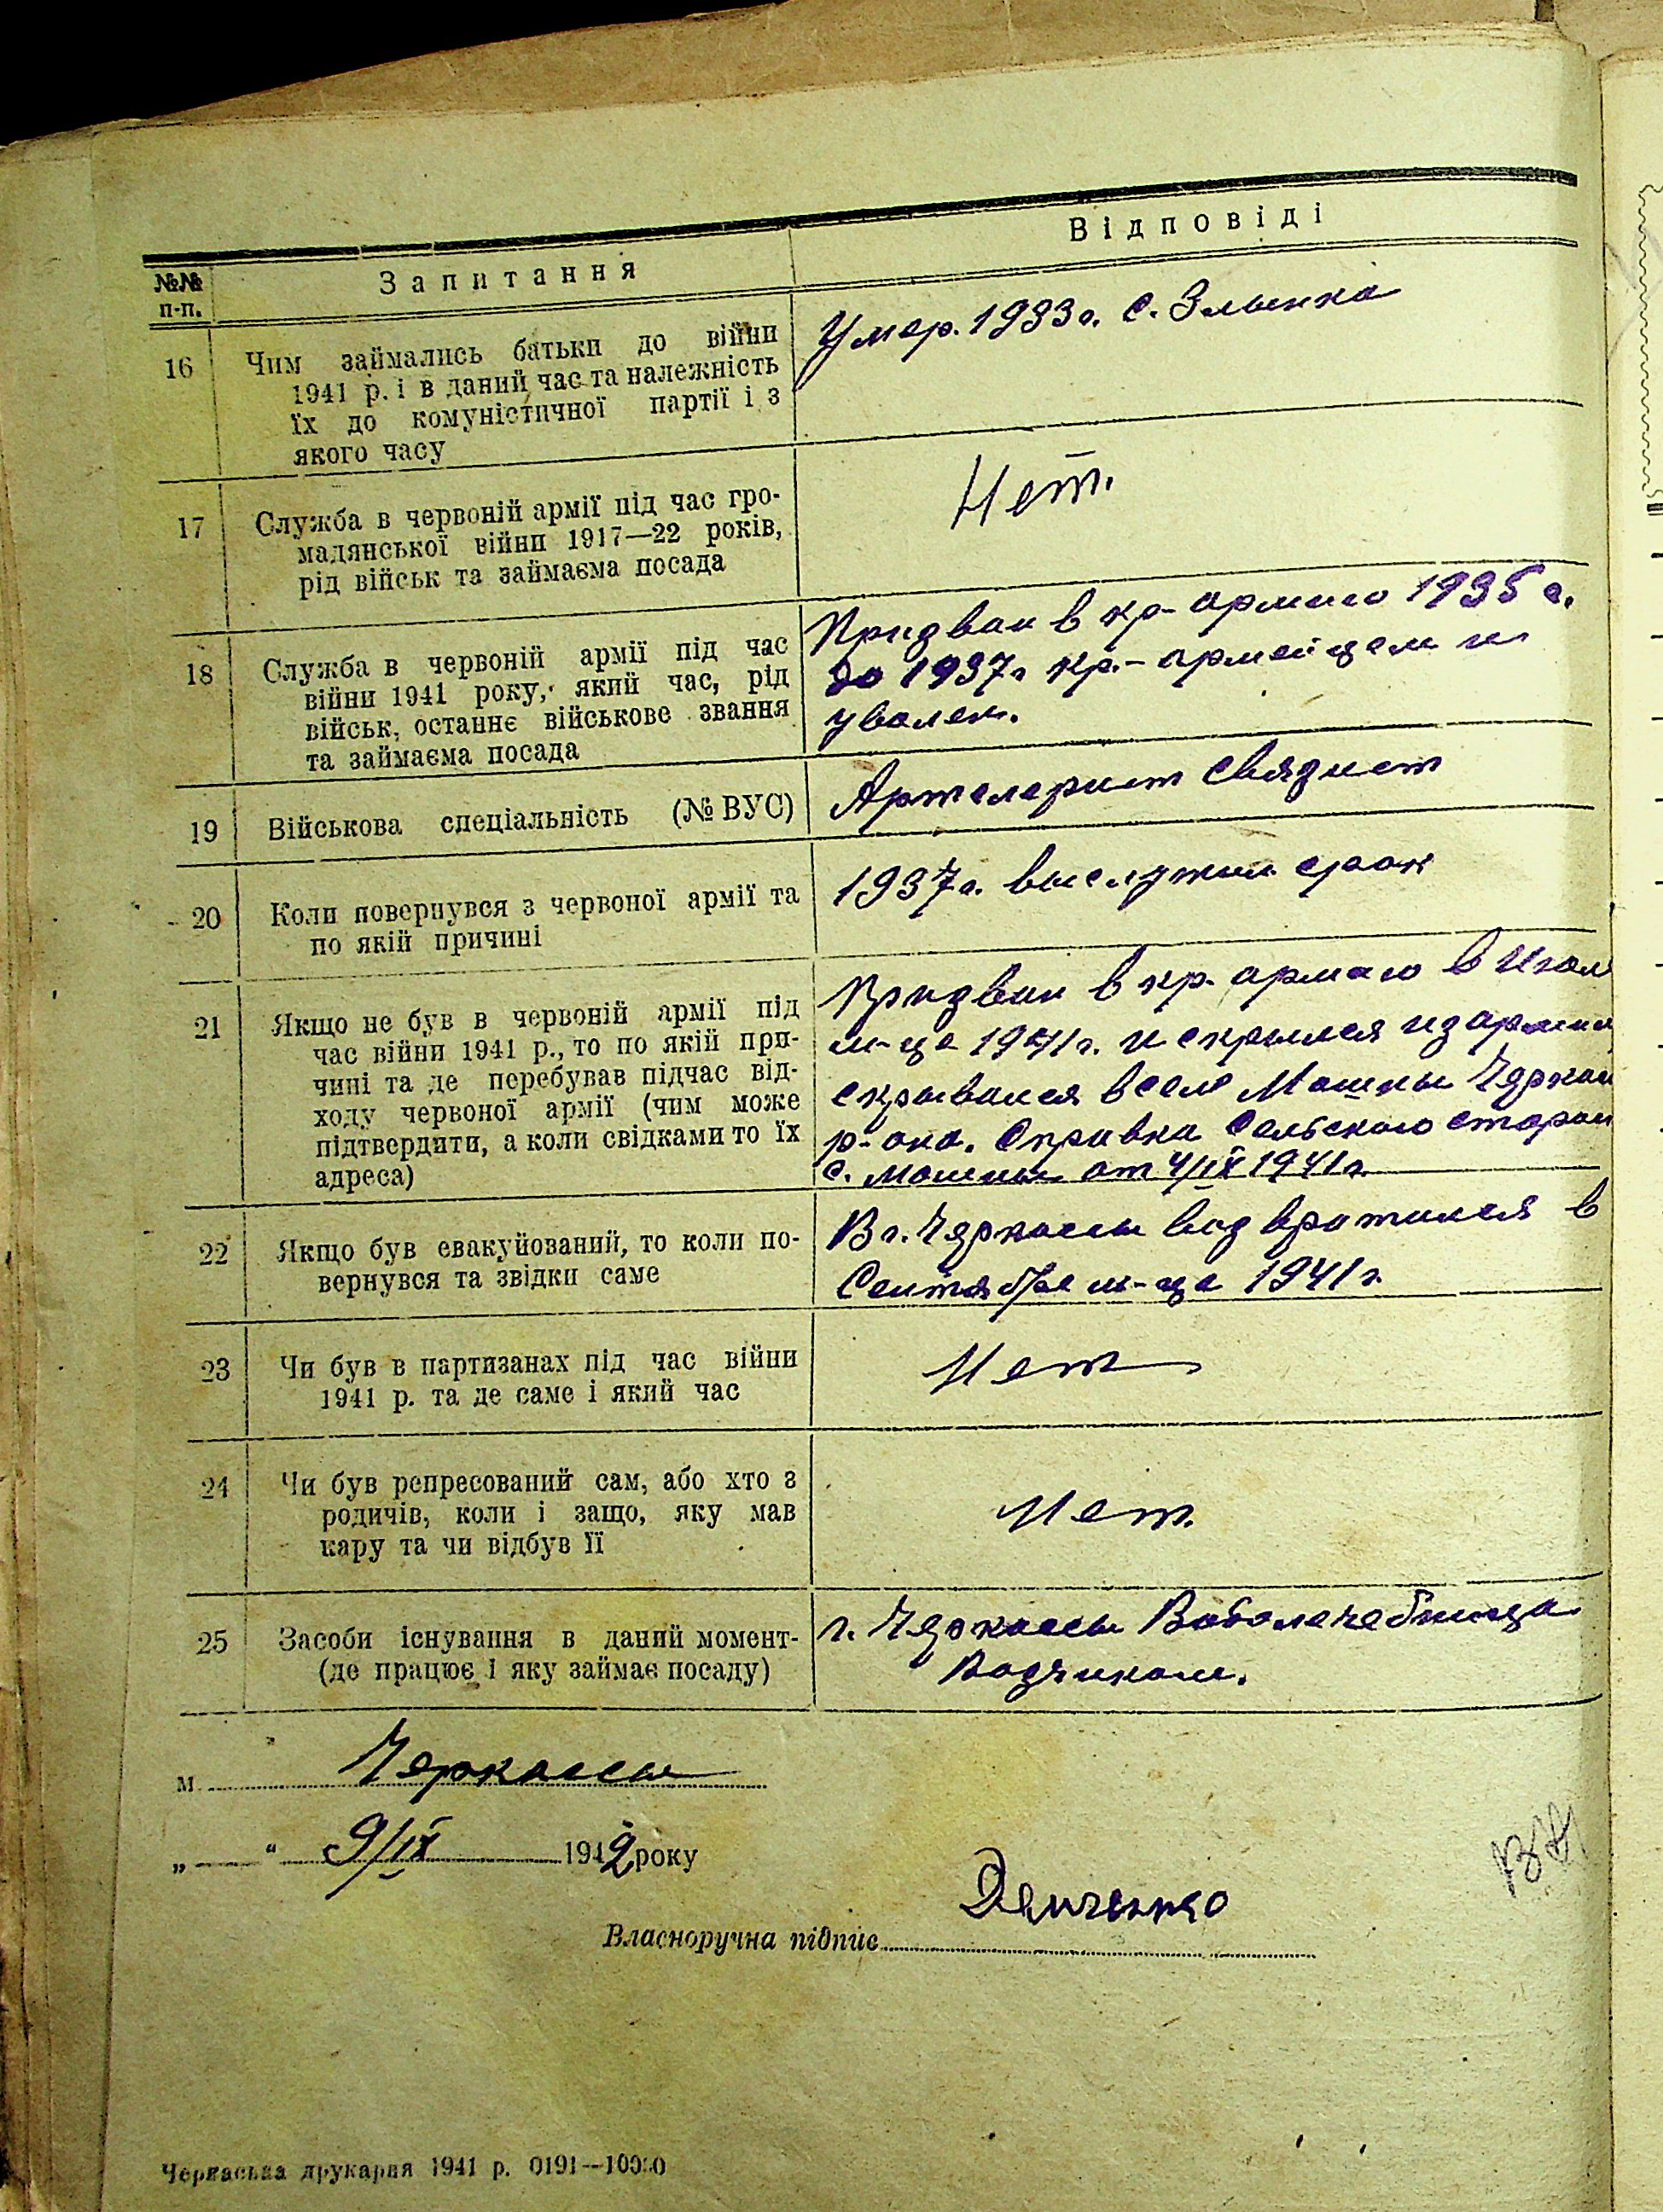 №№ п-п.
Запитання
Відповіді
16
Чим займались батьки до війни
1941 р. і в даний час та належність
їх до комуністичної партії і з
якого часу
Умер. 1933 г. с. Злынка
17
Служба в червоній армії під час гро-
мадянської війни 1917—22 років,
рід військ та займаєма посада
Нет.
18
Служба в червоній армії під час
війни 1941 року, який час, рід
військ, останнє військове звання
та займаєма посада
Призван в кр- армию 1935 г.
до 1937 г кр.- армейцем и
уволен.
19
Військова спеціальність (№ ВУС)
Артелерист Связист
20
Коли повернувся з червоної армії та
по якій причині
1937 г. выслужил срок
21
Якщо не був в червоній армії під
час війни 1941 р., то по якій при-
чині та де перебував підчас від-
ходу червоної армії (чим може
підтвердити, а коли свідками то їх
адреса)
Призван в кр. армаю в Июл
м-це 1941 г. и скрылся из армии
скрывался в селе Мошны Черкас
р-она. Справка Сельского старои
с. Мошны от 4/IX 1941 г.
22
Якщо був евакуйований, то коли по-
вернувся та звідки саме
В г. Черкассы возвратился в
Сентябре м-це 1941 г.
23
Чи був в партизанах під час війни
1941 р. та де саме і який час
Нет
24
Чи був репресований сам, або хто з
родичів, коли і защо, яку мав
кару та чи відбув її
Нет.
25
Засоби існування в даний момент-
(де працює і яку займає посаду)
г. Черкассы Водолечебница
Возчиком.
м. Черкассы
„ — “ 9/IX 1942 року
Власноручна підпис Демченко
Черкаська друкарня 1941 р. 0191—10000